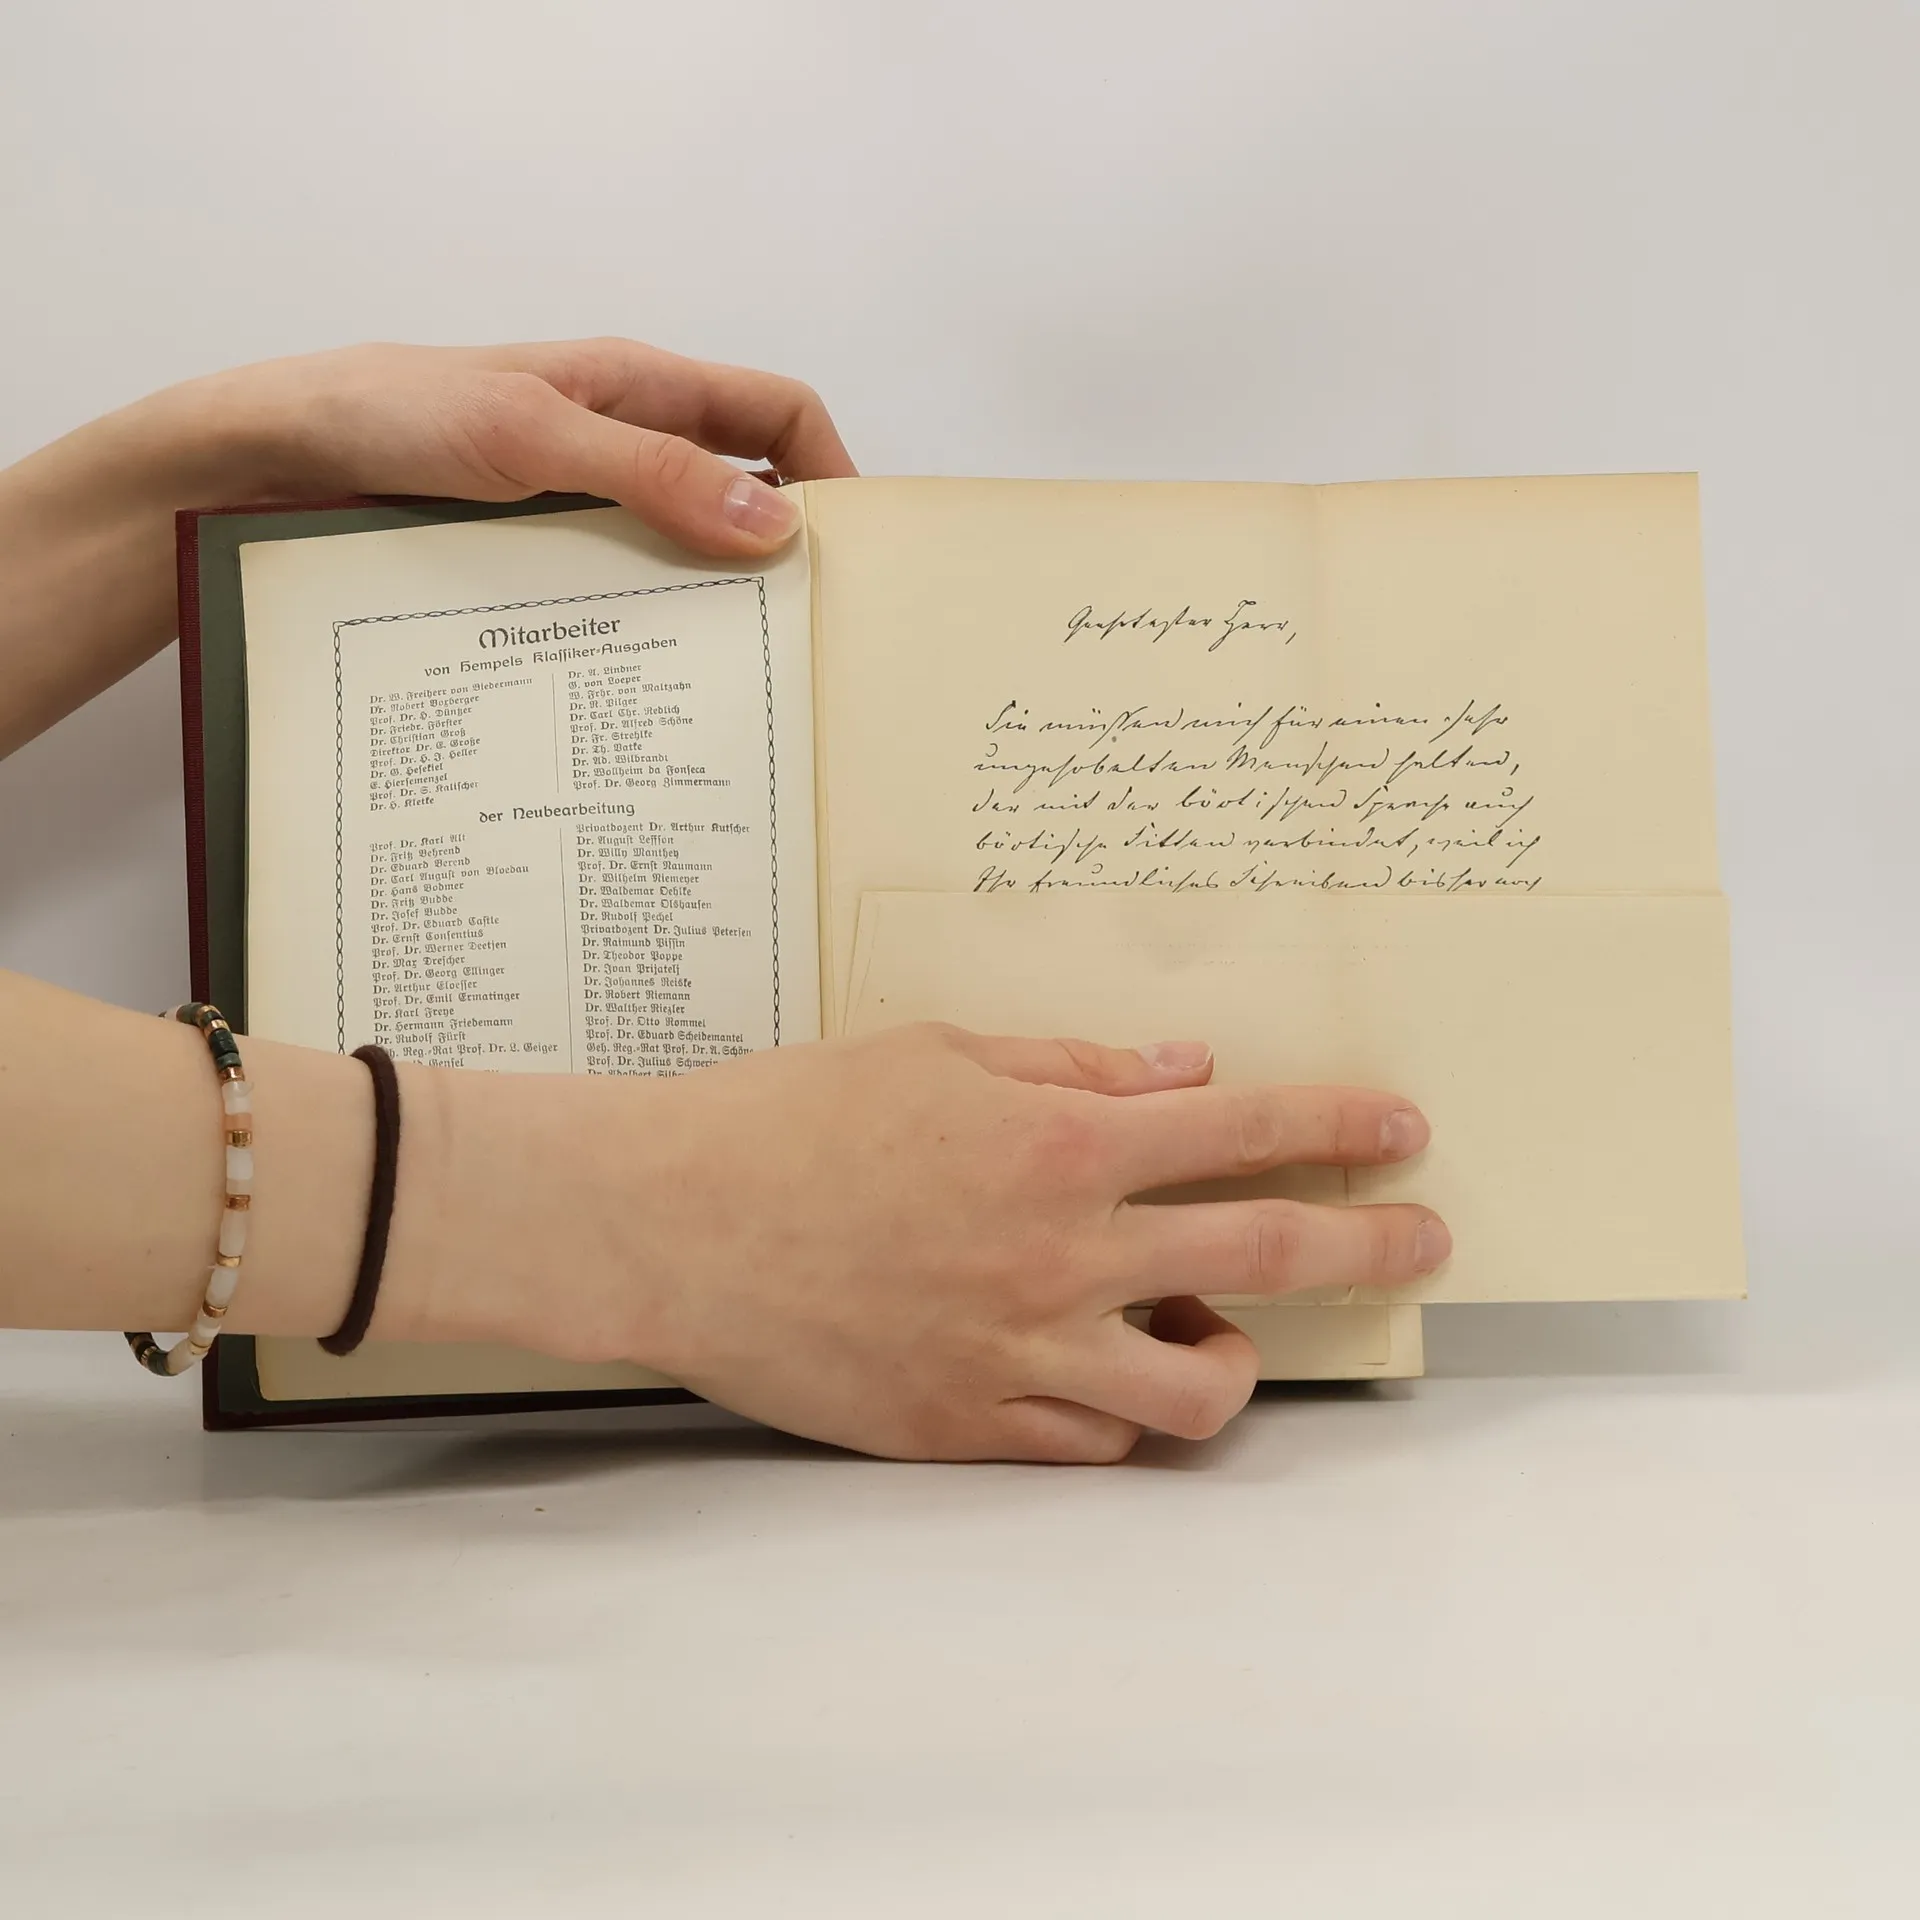 Mitarbeiter
von Hempels Klassiker-Ausgaben
Dr. W. Freiherr von Biedermann
Dr. Robert Boxberger
Prof. Dr. H. Düntzer
Dr. Friedr. Förster
Dr. Christian Groß
Direktor Dr. E. Große
Prof. Dr. H. J. Heller
Dr. G. Hesekiel
E. Hiersemenzel
Prof. Dr. S. Kalischer
Dr. H. Kletke
Dr. A. Lindner
G. von Loeper
W. Frhr. von Maltzahn
Dr. R. Pilger
Dr. Carl Chr. Redlich
Prof. Dr. Alfred Schöne
Dr. Fr. Strehlke
Dr. Th. Vatke
Dr. Ad. Wilbrandt
Dr. Wollheim da Fonseca
Prof. Dr. Georg Zimmermann
der Neubearbeitung
Prof. Dr. Karl Alt
Dr. Fritz Behrend
Dr. Eduard Berend
Dr. Carl August von Bloedau
Dr. Hans Bodmer
Dr. Fritz Budde
Dr. Josef Budde
Prof. Dr. Eduard Castle
Dr. Ernst Consentius
Prof. Dr. Werner Deetjen
Dr. Max Drescher
Prof. Dr. Georg Ellinger
Dr. Arthur Eloesser
Prof. Dr. Emil Ermatinger
Dr. Karl Freye
Dr. Hermann Friedemann
Dr. Rudolf Fürst
Reg.-Rat Prof. Dr. L. Geiger
Gensel
Privatdozent Dr. Arthur Kutscher
Dr. August Leffson
Dr. Willy Manthey
Prof. Dr. Ernst Naumann
Dr. Wilhelm Niemeyer
Dr. Waldemar Oehlke
Dr. Waldemar Olshausen
Dr. Rudolf Pechel
Privatdozent Dr. Julius Petersen
Dr. Raimund Pissin
Dr. Theodor Poppe
Dr. Ivan Prijatelj
Dr. Johannes Reiske
Dr. Robert Riemann
Dr. Walther Riezler
Prof. Dr. Otto Rommel
Prof. Dr. Eduard Scheidemantel
Geh. Reg.-Rat Prof. Dr. A. Schöne
Prof. Dr. Julius
Dr. Adalbert
Geehrtester Herr,
Sie müssen mich für einen sehr
ungehobelten Menschen halten,
der mit der böotischen Sprache auch
böotische Sitten verbindet, weil ich
Ihr freundliches Schreiben bisher noch